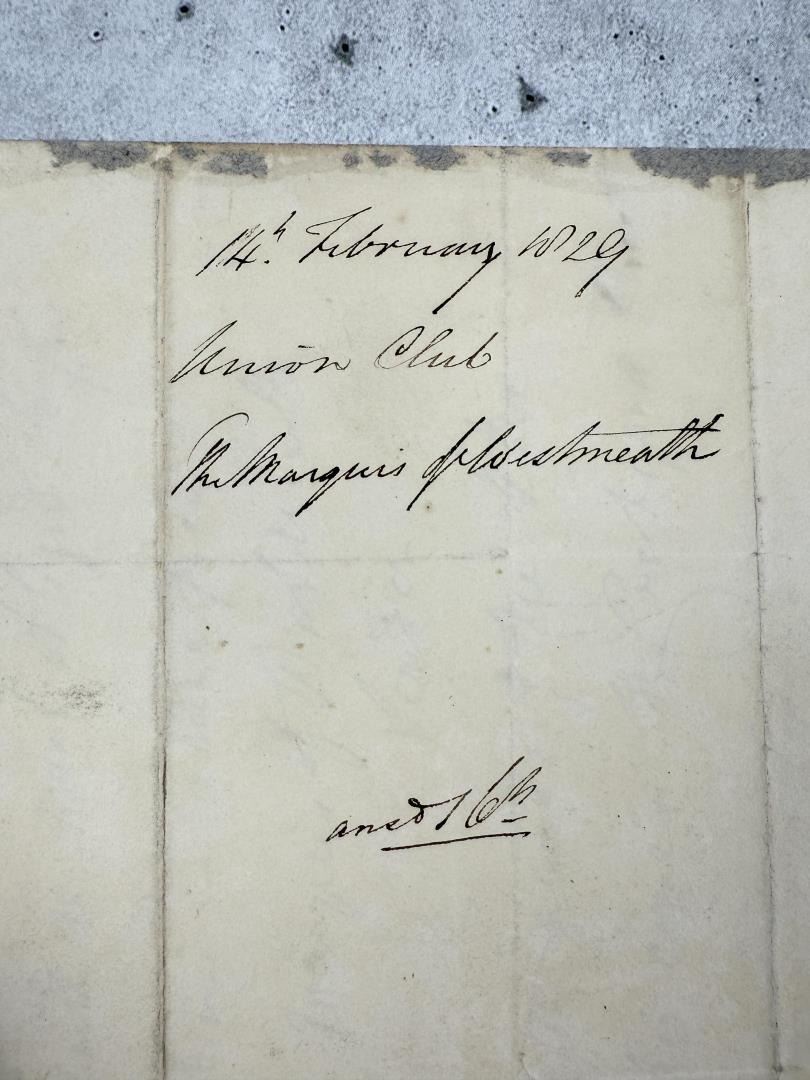 14th. February 1829
Union Club
The Marquis of Westmeath
ansd 16th